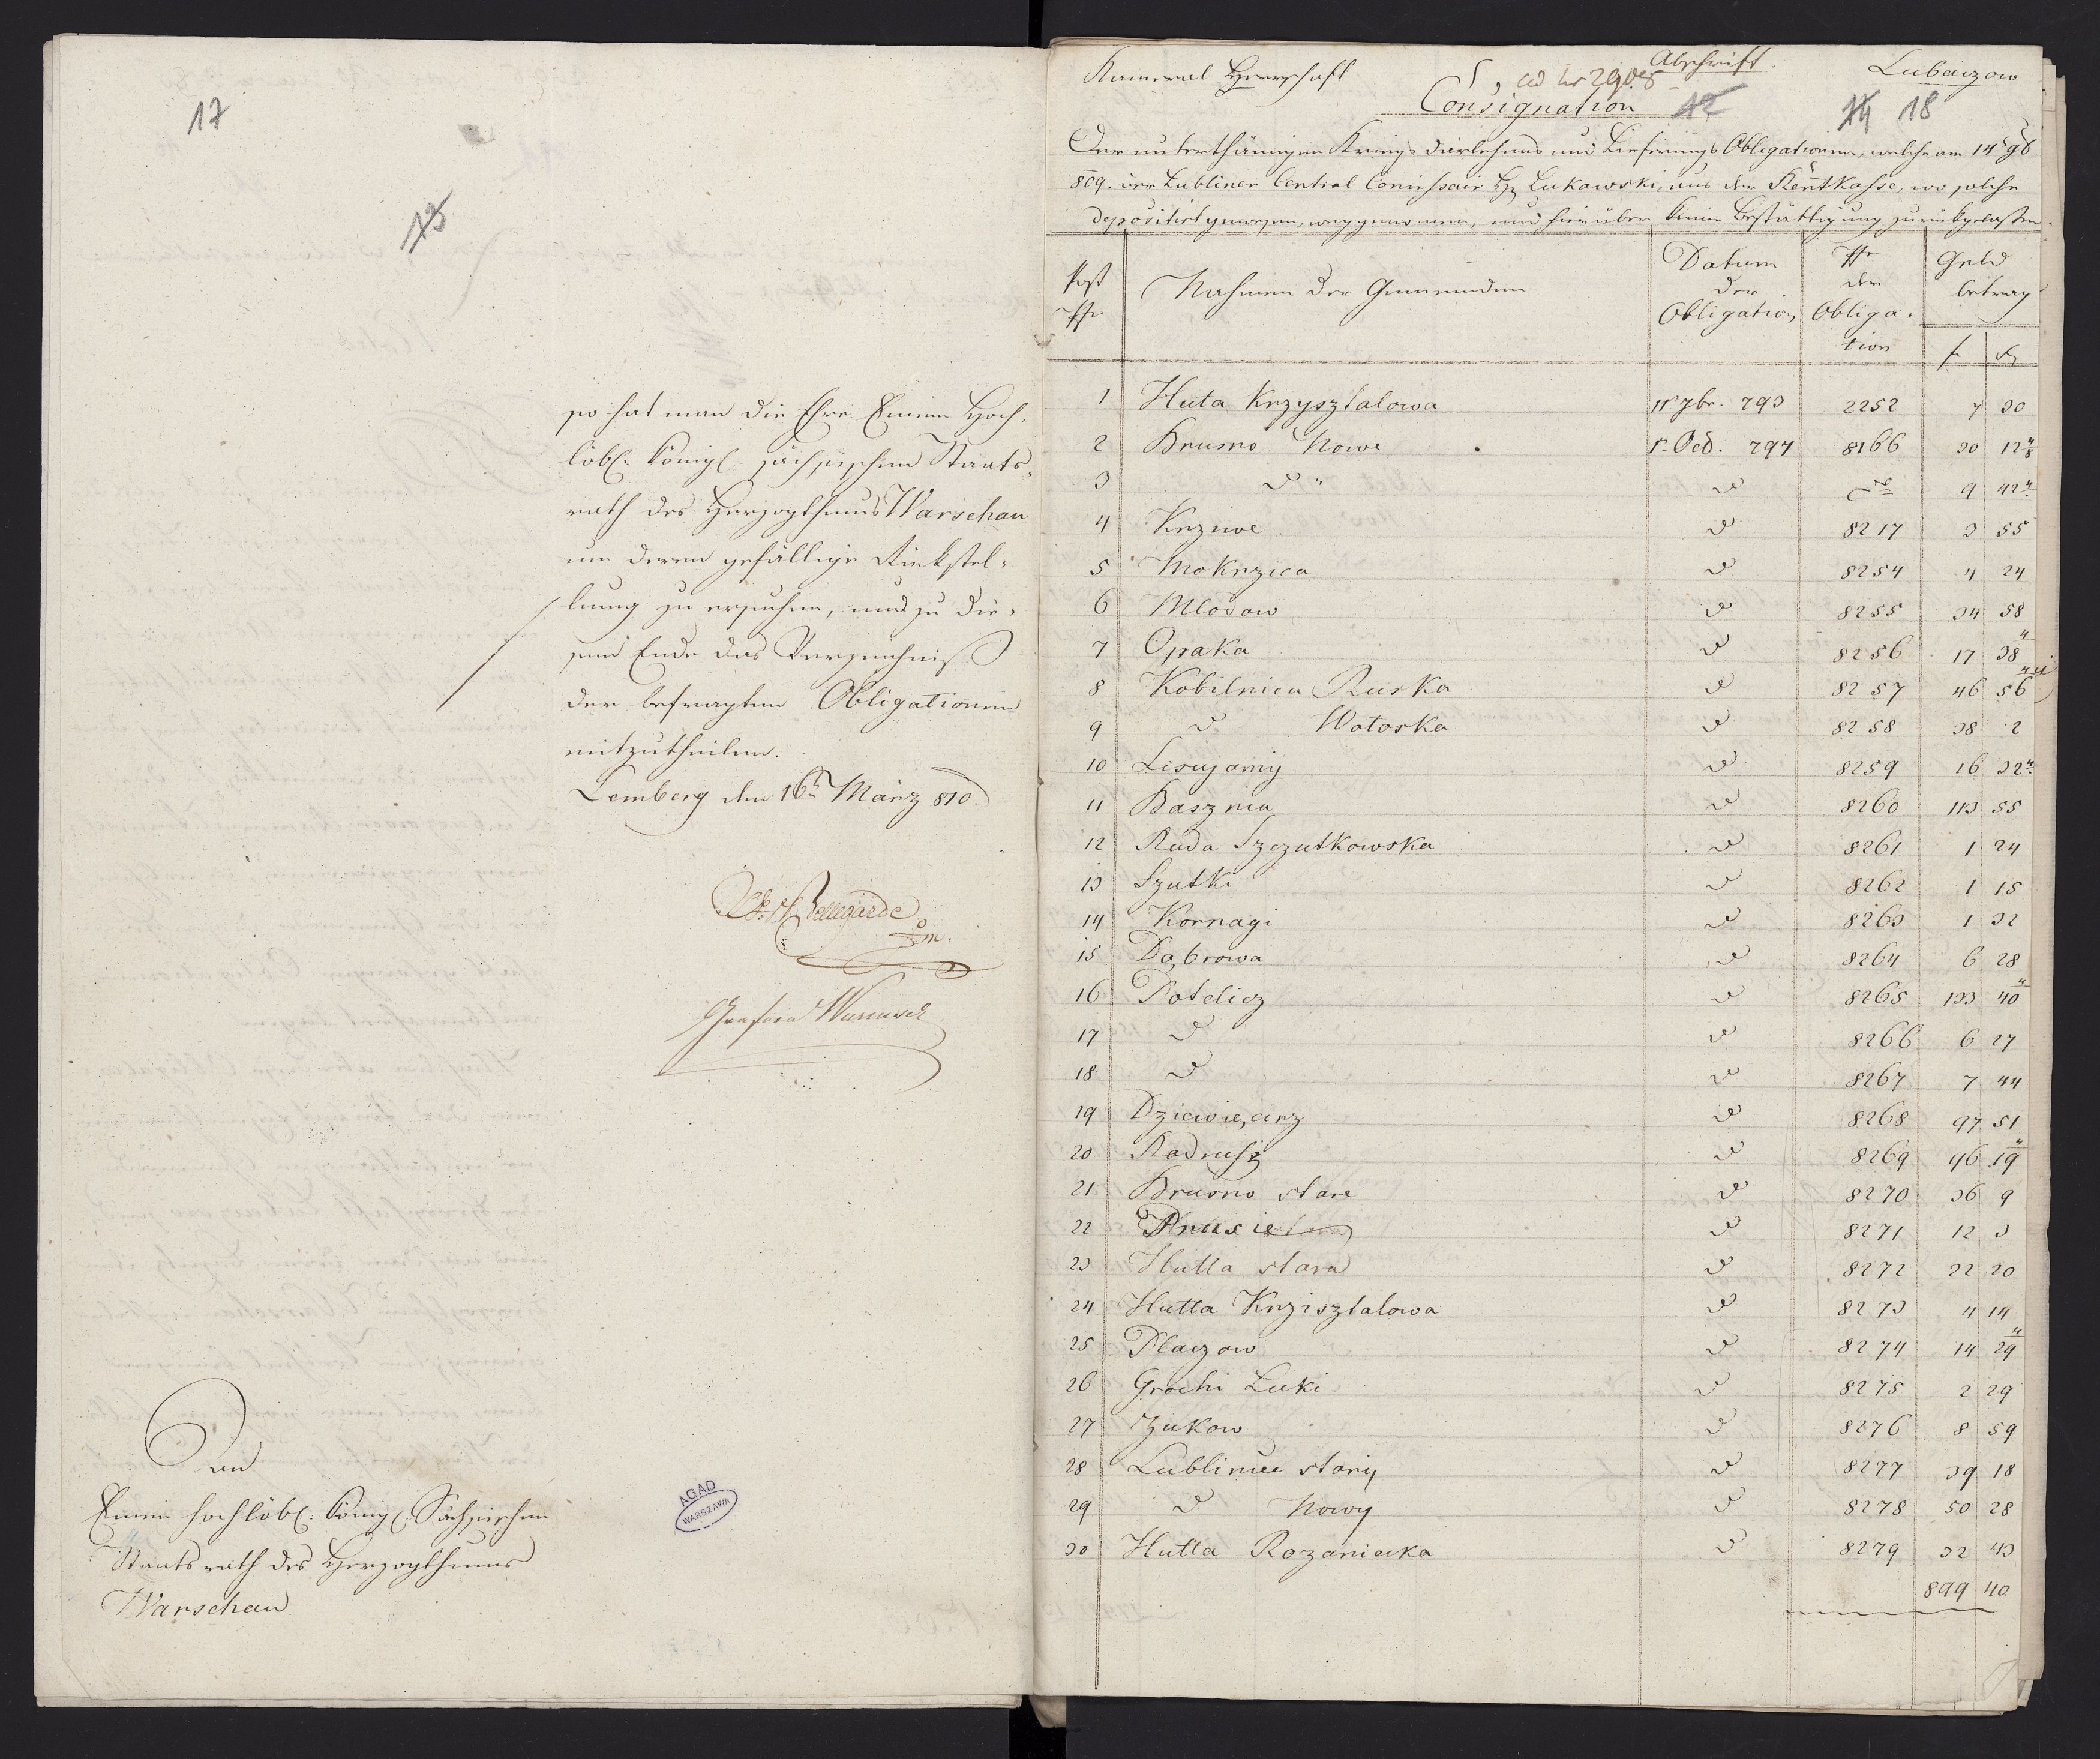 17
13
so hat man die Ehre Einen Hoch-
löbl. Königl. sächsischen Staats-
rath des Herzogthums Warschau
um deren gefällige Rückstel-
lung zu ersuchen, und zu die-
sem Ende das Verzeichniß
der befragten Obligationen
mitzutheilen.
Lemberg den 16n März 810.
Bellegarde
FM.
An
Einen hochlöbl: Königl: Sächsischen
Staatsrath des Herzogthums
Warschau.
AGAD
WARSZAWA
Kameral Herrschaft Abschrift. Lubaczow
Consignation 12 14 18
Der unterthänigen Kriegs Darlehens und Lieferungs Obligationen, welche am 14 9b
809. der Lubliner Central Comissair H. Lukawski, aus der Rentkasse, wo solche
depositirt gewesen, weggenomen, und hierüber keine Bestättigung zurückgelassen.
Post Nro Nahmen der Gemeinden Datum der Obligation Nro der Obliga-tion Geld betrag f x
1 Huta Krzysztalowa 1r 7br. 793 2252 7 30
2 Brusno Nowe 1r Oct. 794 8166 30 12 4/8
3 do do do 9 42 4
4 Krziwe do 8217 3 55
5 Mokrzica do 8254 4 24
6 Mlodow do 8255 34 58
7 Opaka do 8256 17 38 4
8 Kobilnica Ruska do 8257 46 56 4
9 do Wotoska do 8258 38 2
10 Lisujamy do 8259 16 32 4
11 Basznia do 8260 113 55
12 Ruda Szczutkowska do 8261 1 24
13 Szutki do 8262 1 15
14 Kornagi do 8263 1 32
15 Dąbrowa do 8264 6 28
16 Potelicz do 8265 133 40 4
17 do do 8266 6 27
18 do do 8267 7 44
19 Dziewięcirz do 8268 97 51
20 Radrusz do 8269 46 19 4
21 Brusno stare do 8270 36 9
22 Prusie do 8271 12 3
23 Hutta stara do 8272 22 20
24 Hutta Krzisztalowa do 8273 4 14
25 Plazow do 8274 14 29 4
26 Grochi Luki do 8275 2 29
27 Zukow do 8276 8 59
28 Lubliniec stary do 8277 39 18
29 do Nowy do 8278 50 28
30 Hutta Rozaniecka do 8279 32 43
899 40